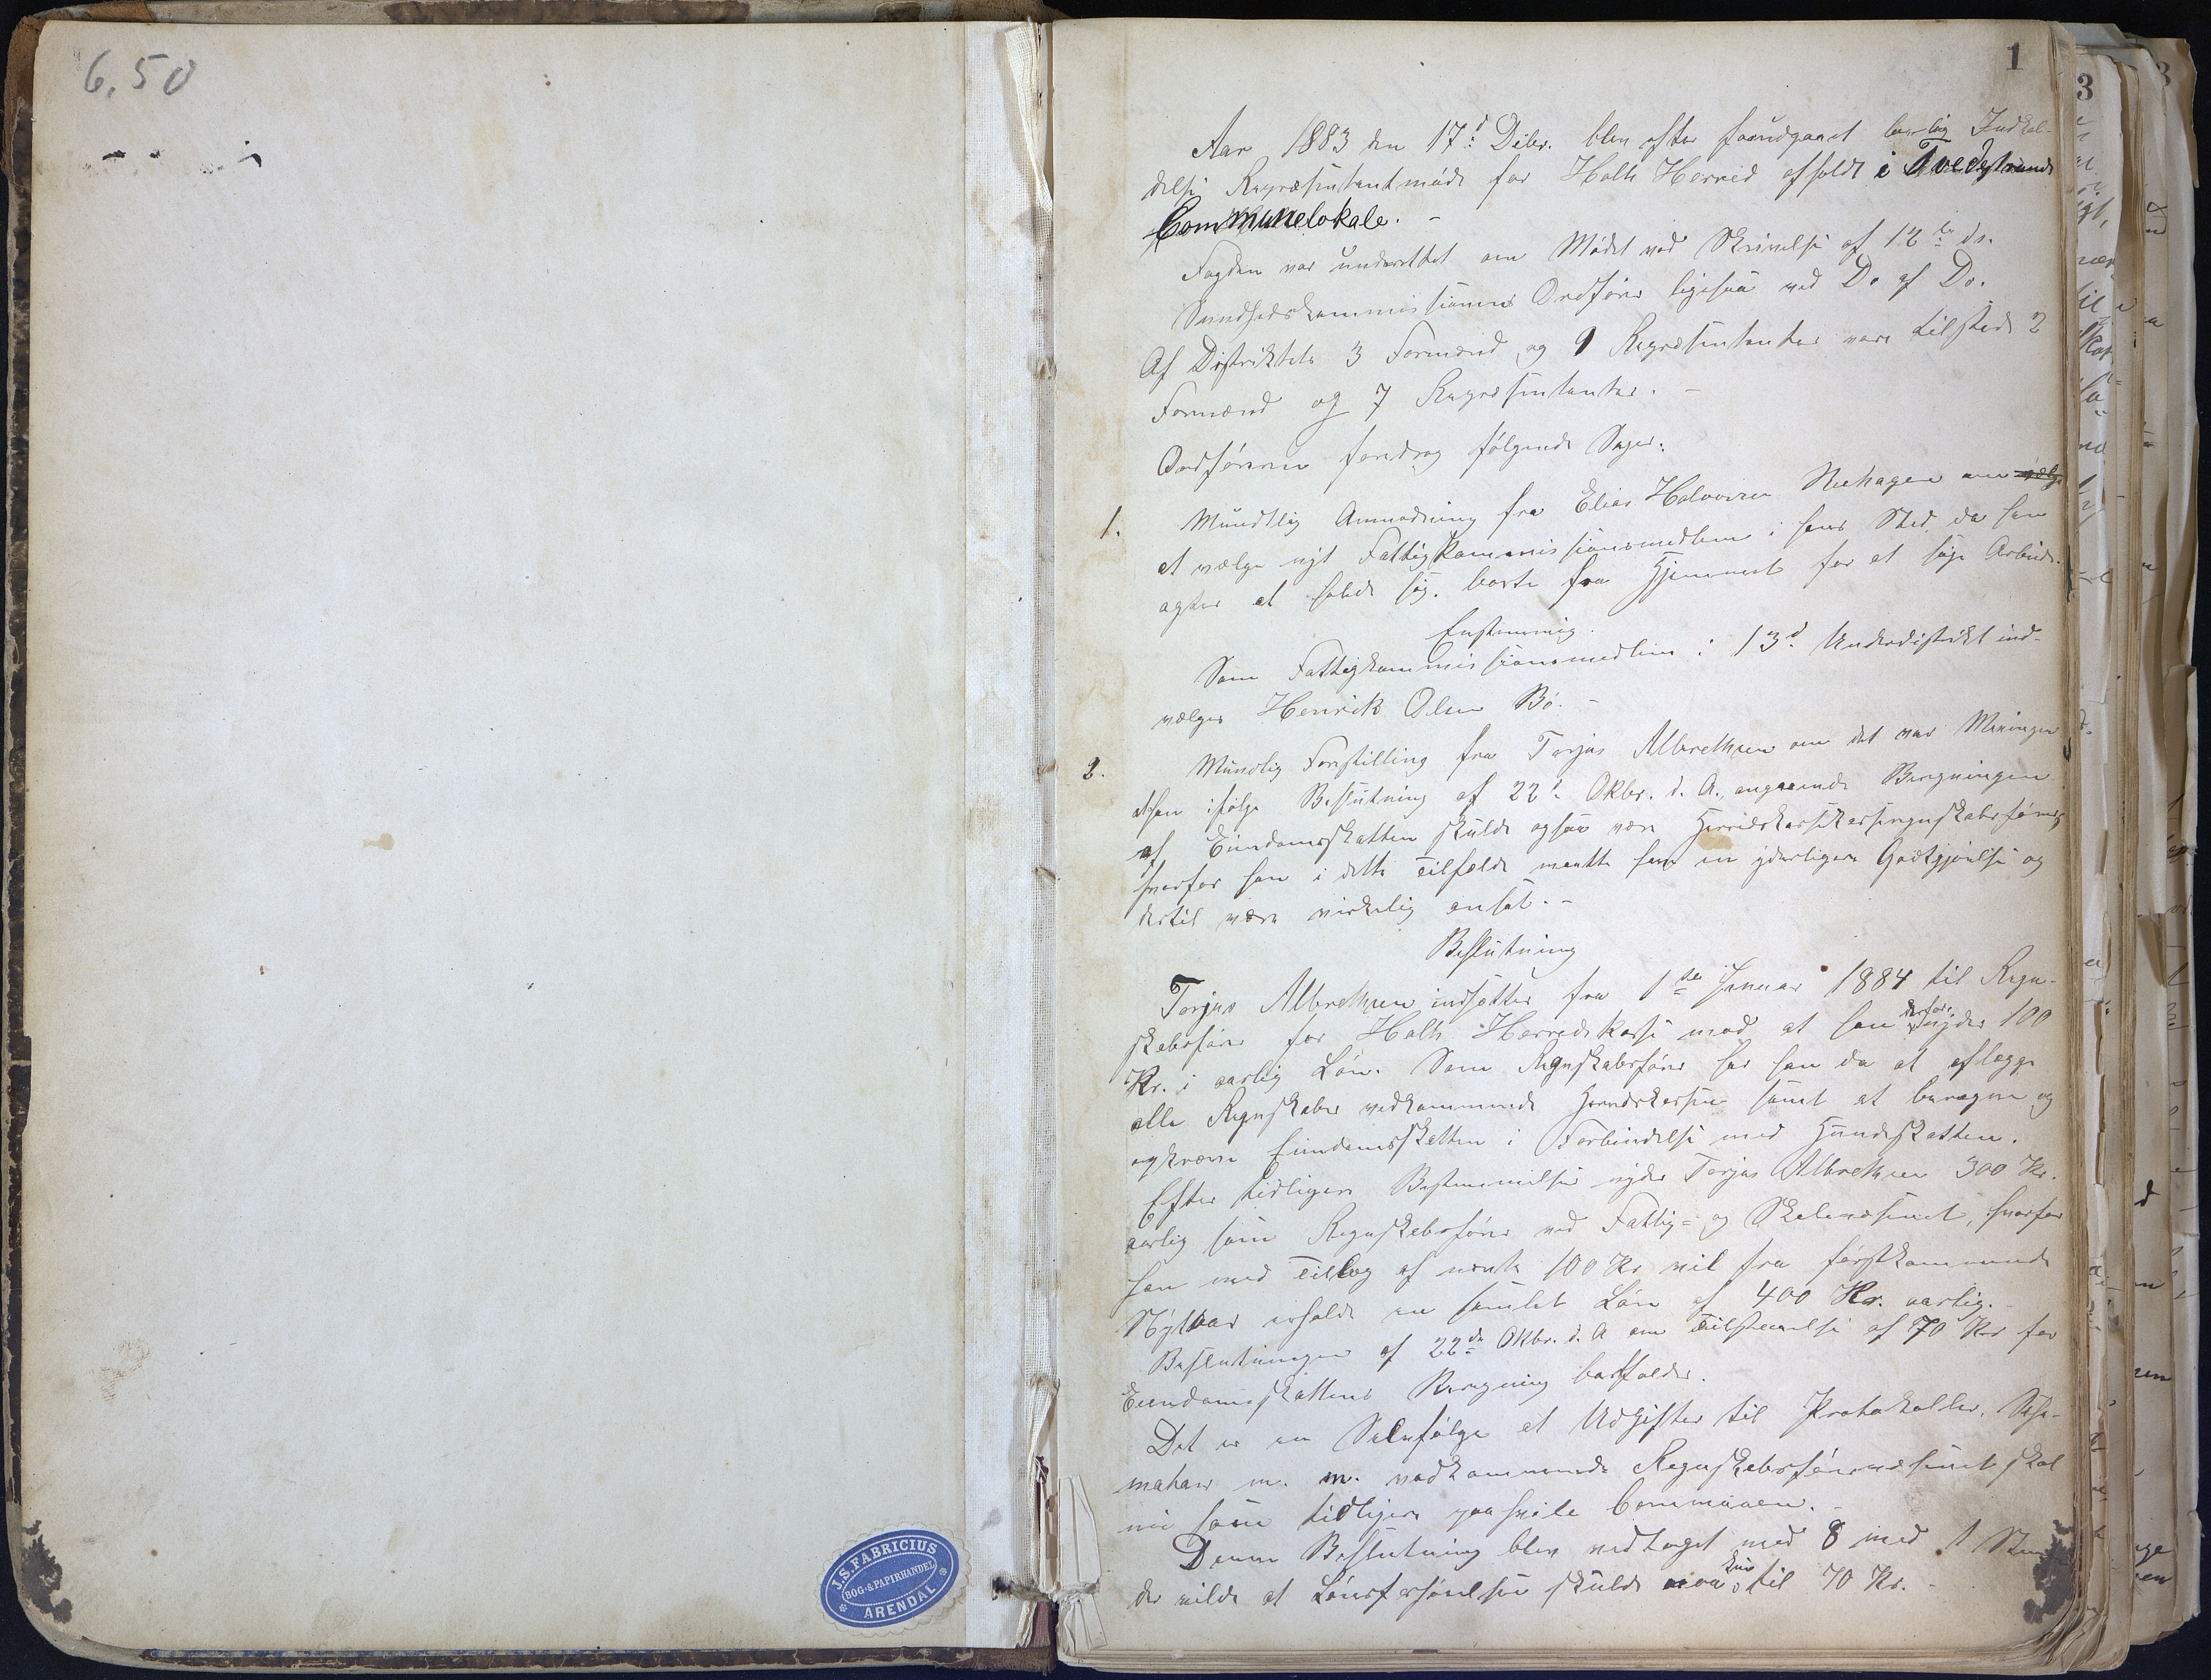 6,50
J. S. FABRICIUS
BOG- & PAPIRHANDEL
ARENDAL
1
Aar 1883 den 17d Debr. blev efter forudgaaet lovlig Indkal-
delse Repræsentantmøde for Holts Herred afholdt i Tvedestrands
Communelokale. -
Fogden var underrettet om Mødet ved Skrivelse af 12te ds.
Sundhedskommissionens Ordfører ligesaa ved Do af Do.
Af Distriktets 3 Formænd og 9 Repræsentanter vare tilstede 2
Formænd og 7 Repræsentanter. -
Ordføreren foredrog følgende Sager:
1. Mundtlig Anmodning fra Elias Halvorsen om vælge
at vælge nyt Fattigkommissionsmedlem i hans Sted, da han
agter at holde sig borte fra Hjemmet for at søge Arbeide.
Enstemmig.
Som Fattigkommissionsmedlem i 13d Underdistrikt ind-
vælges Henrik Olsen Bø. -
2. Mundlig Forestilling fra Terjus Albrethsen om det var Meningen
at han ifølge Beslutning af 22de Okbr. d. A. angaaende Beregningen
af Eiendomsskatten skulde ogsaa være Herredskassekasseregnskabsfører,
hvorfor han i dette Tilfælde maatte have en yderligere Godtgjørelse og
dertil være virkelig ansat. -
Beslutning
Terjus Albrethsen indsættes fra 1ste Januar 1884 til Regn-
skabsfører for Holts Herredskasse mod at han derfor nyder 100
Kr. i aarlig Løn. Som Regnskabsfører har han da at aflægge
alle Regnskaber vedkommende Herredskassen samt at beregne og
opkræve Eiendomsskatten i Forbindelse med Hundeskatten.
Efter tidligere Bestemmelse nyder Terjus Albrethsen 300 Kr.
aarlig som Regnskabsfører ved Fattig- og Skolevæsenet, hvorfor
han med Tillæg af nævnte 100 Kr. vil fra førstkommende
Nytaar erholde en samlet Løn af 400 Kr. aarlig. -
Beslutningen af 22de Okbr. d. A om Tilstaaelse af 70 Kr for
Eiendomsskattens Beregning bortfalder.
Det er en Selvfølge at Udgifter til Protokoller, Sche-
mataer m. m. vedkommende Regnskabsførervæsenet skal
nu som tidligere paahvile Communen. -
Denne Beslutning blev vedtaget med 8 mod 1 Stemme
der vilde at Lønsforhøielsen skulde være kun til 70 Kr. -